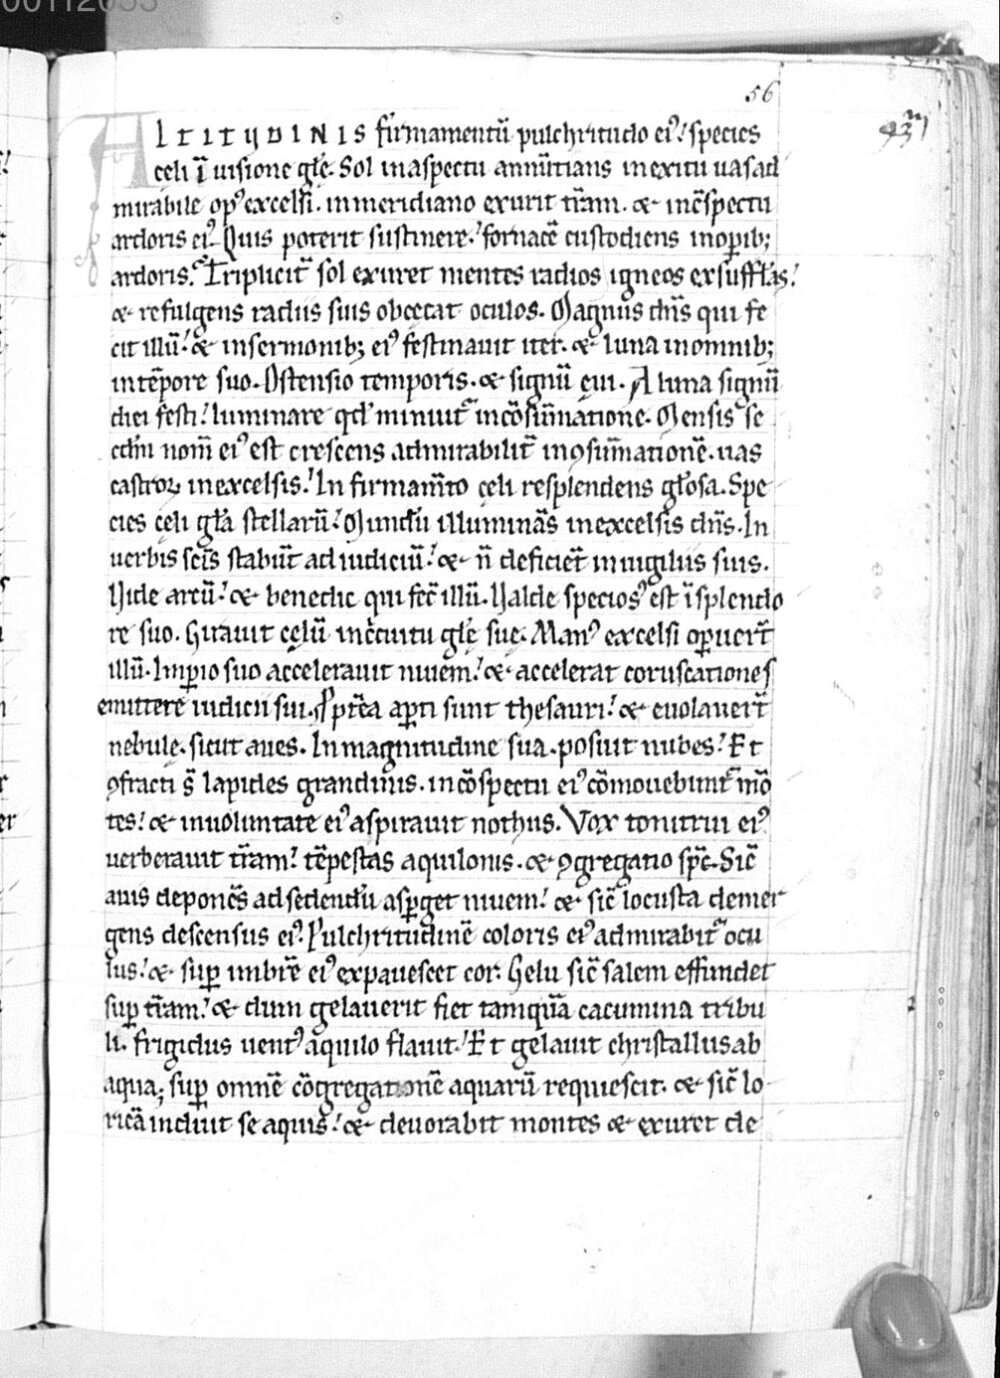 00112653
56
43
ALTITUDINIS firmamentū pulchritudo ei᾽ species
celi ī uisione glę. Sol inaspectu annūtians inexitu uasad
mirabile op᾽ excelsi. inmeridiano exurit t̄ram. & inc̄spectu
ardoris ei᾽. Quis poterit sustinere. fornacē custodiens inop̄ib;
ardoris. Triplicit̄ sol exuret mentes radios igneos exsufflās.
& refulgens radiis suis obcęcat oculos. Magnus dn̄s qui fe
cit illū. & insermonib; ei᾽ festinauit iter. & luna inomnib;
intēpore suo. Ostensio temporis. & signū ęui. A luna signū
diei festi. luminare qd̄ minuit̄ incōsūmatione. Mensis se
cd̄m nom̄ ei᾽ est crescens admirabilit̄ inꝯsūmationē. uas
castroꝝ inexcelsis. In firmam̄to cęli resplendens gl̄osa. Spe
cies cęli gl̄a stellarū. Mundū illuminās inexcelsis dn̄s. In
uerbis sc̄is stabūt ad iudiciū. & n̄ deficiēt inuigiliis suis.
Uide arcū. & benedic qui fec̄ illū. Ualde specios᾽ est īsplendo
re suo. Girauit cęlū inc̄cuitu glę suę. Man᾽ excelsi aꝑuert̄
illū. Imꝑio suo accelerauit niuem. & accelerat coruscationes
emittere iudicii sui. Ppt̄ea aꝑti sunt thesauri. & euolauer̄t
nebulę. sicut aues. In magnitudine sua. posuit nubes. Et
ꝯfracti s̄ lapides grandinis. incōspectu ei᾽ cōmouebunt̄ mō
tes. & inuoluntate ei᾽ aspirauit nothus. Vox tonitrui ei᾽
uerberauit t̄ram. tēpestas aquilonis. & ꝯgregatio sp̄c. Sic̄
auis deponēs ad sedendū asꝑget niuem. & sic̄ locusta demer
gens descensus ei᾽. Pulchritudinē coloris ei᾽ admirabit̄ ocu
lus. & suꝑ imbrē ei᾽ expauescet cor. Gelu sic̄ salem effundet
suꝑ t̄ram. & dum gelauerit fiet tamquā cacumina tribu
li. frigidus uent᾽ aquilo flauit. Et gelauit christallus ab
aqua; suꝑ omnē cōgregationē aquarū requiescit. & sic̄ lo
ricā induit se aquis. & deuorabit montes & exuret de